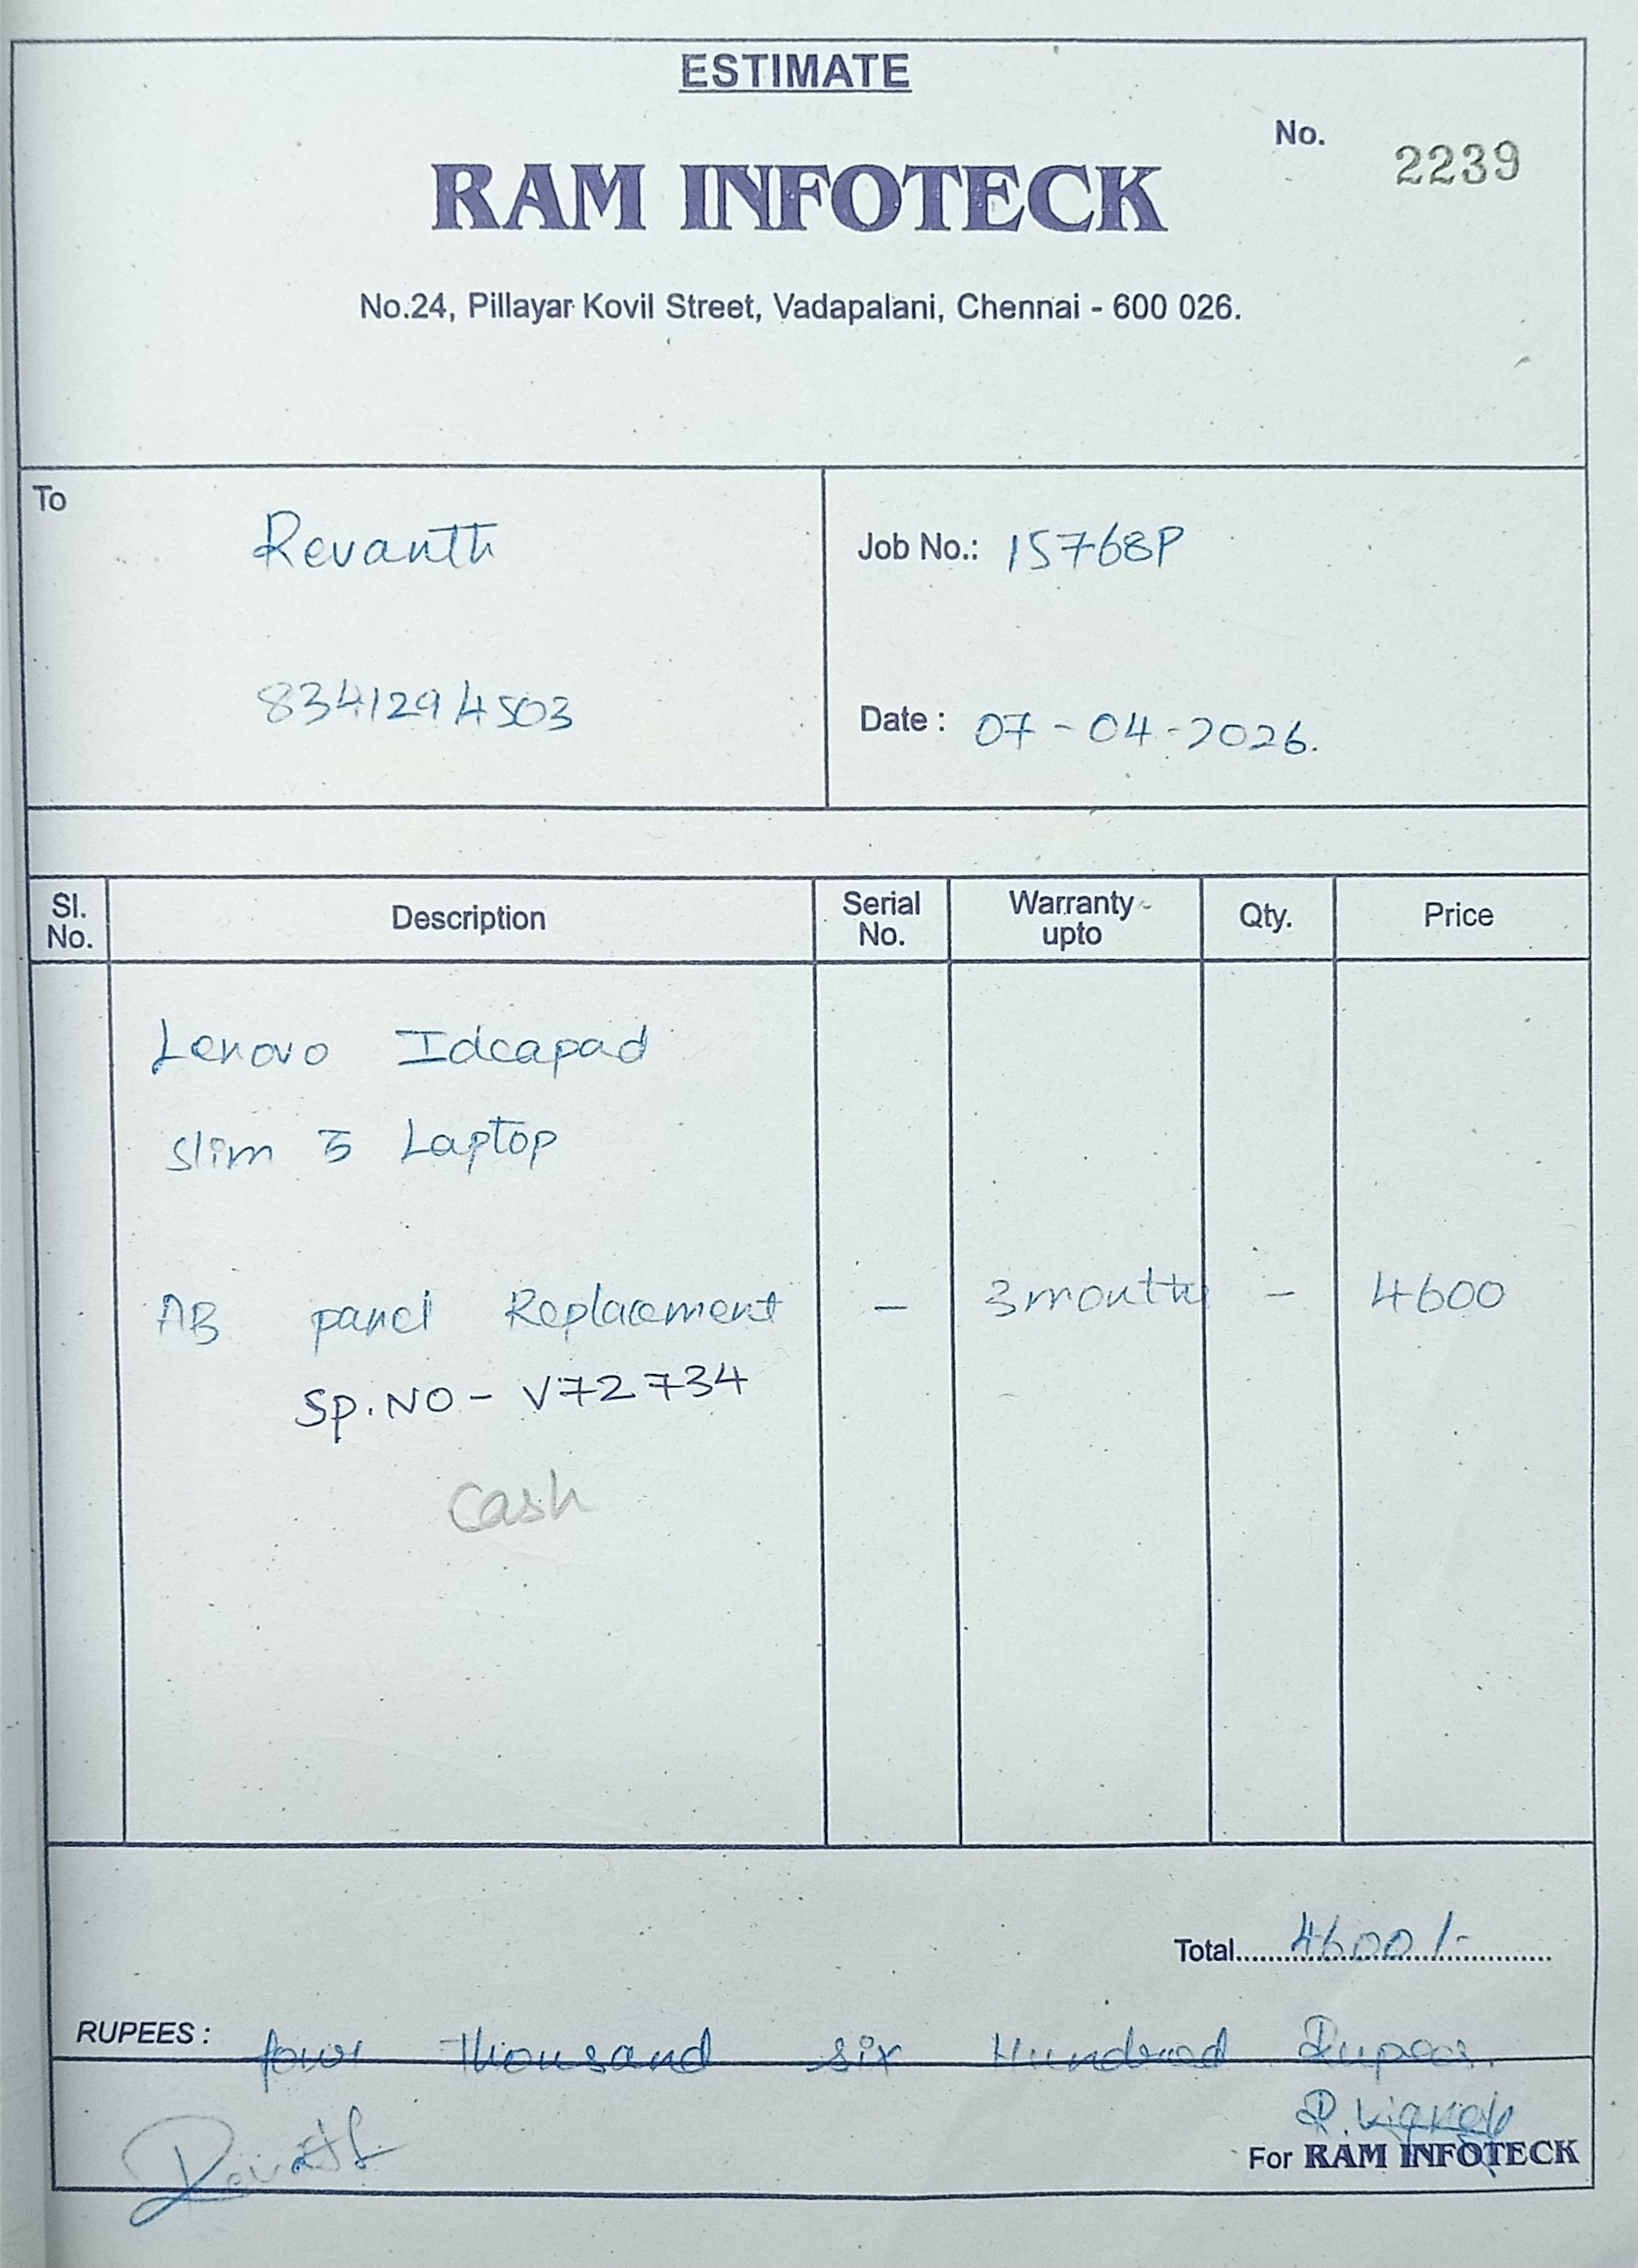 ESTIMATE
No. 2239
RAM INFOTECK
No.24, Pillayar Kovil Street, Vadapalani, Chennai - 600 026.
To
Revanth
Job No.: 15768P
8341294503
Date : 07-04-2026.
Sl. No. Description Serial No. Warranty upto Qty. Price
Lenovo Ideapad
slim 3 Laptop
AB panel Replacement - 3 months - 4600
Sp.NO - V72734
Cash
Total 4600/-
RUPEES : four Thousand six Hundred Rupees.
R. Vignesh
Revanth
For RAM INFOTECK